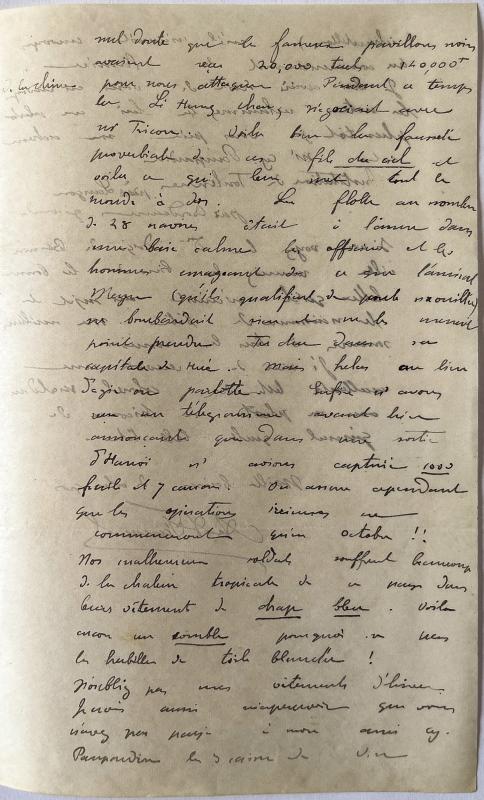 nul doute que les fameux pavillons noirs
avaient reçu 20,000 taels 140,000f
de la chine pour nous attaquer. Pendant ce temps
là, Li Hung chan négociait avec
Mr Tricou. Voilà bien la fausseté
proverbiale de ces fils du ciel et
voilà ce qui leur met tout le
monde à dos. La flotte au nombre
de 28 navires était à l'ancre dans
une baie calme les officiers et les
hommes enrageant de ce que l'amiral
Meyer (qu'ils qualifient de poule mouillée)
ne bombardait vivement et ne venait
point prendre Tu duc dans sa
capitale de Hué. Mais helas au lieu
d'agir on parlotte. Enfin n/ avons
reçu un télégramme avant hier
annonçant que dans une sortie
d'Hanoï n/ avions capturé 1000
fusils et 7 canons. On assure cependant
que les opérations sérieuses ne
commenceront qu'en octobre !!
Nos malheureux soldats souffrent beaucoup
de la chaleur tropicale de ce pays dans
leurs vêtements de drap bleu. Voilà
encore un comble pourquoi ne pas
les habiller de toile blanche !
N'oubliez pas mes vêtements d'hiver
Je vois aussi que vous
n'avez pas payé à mon ami
les 3 caisses de vin